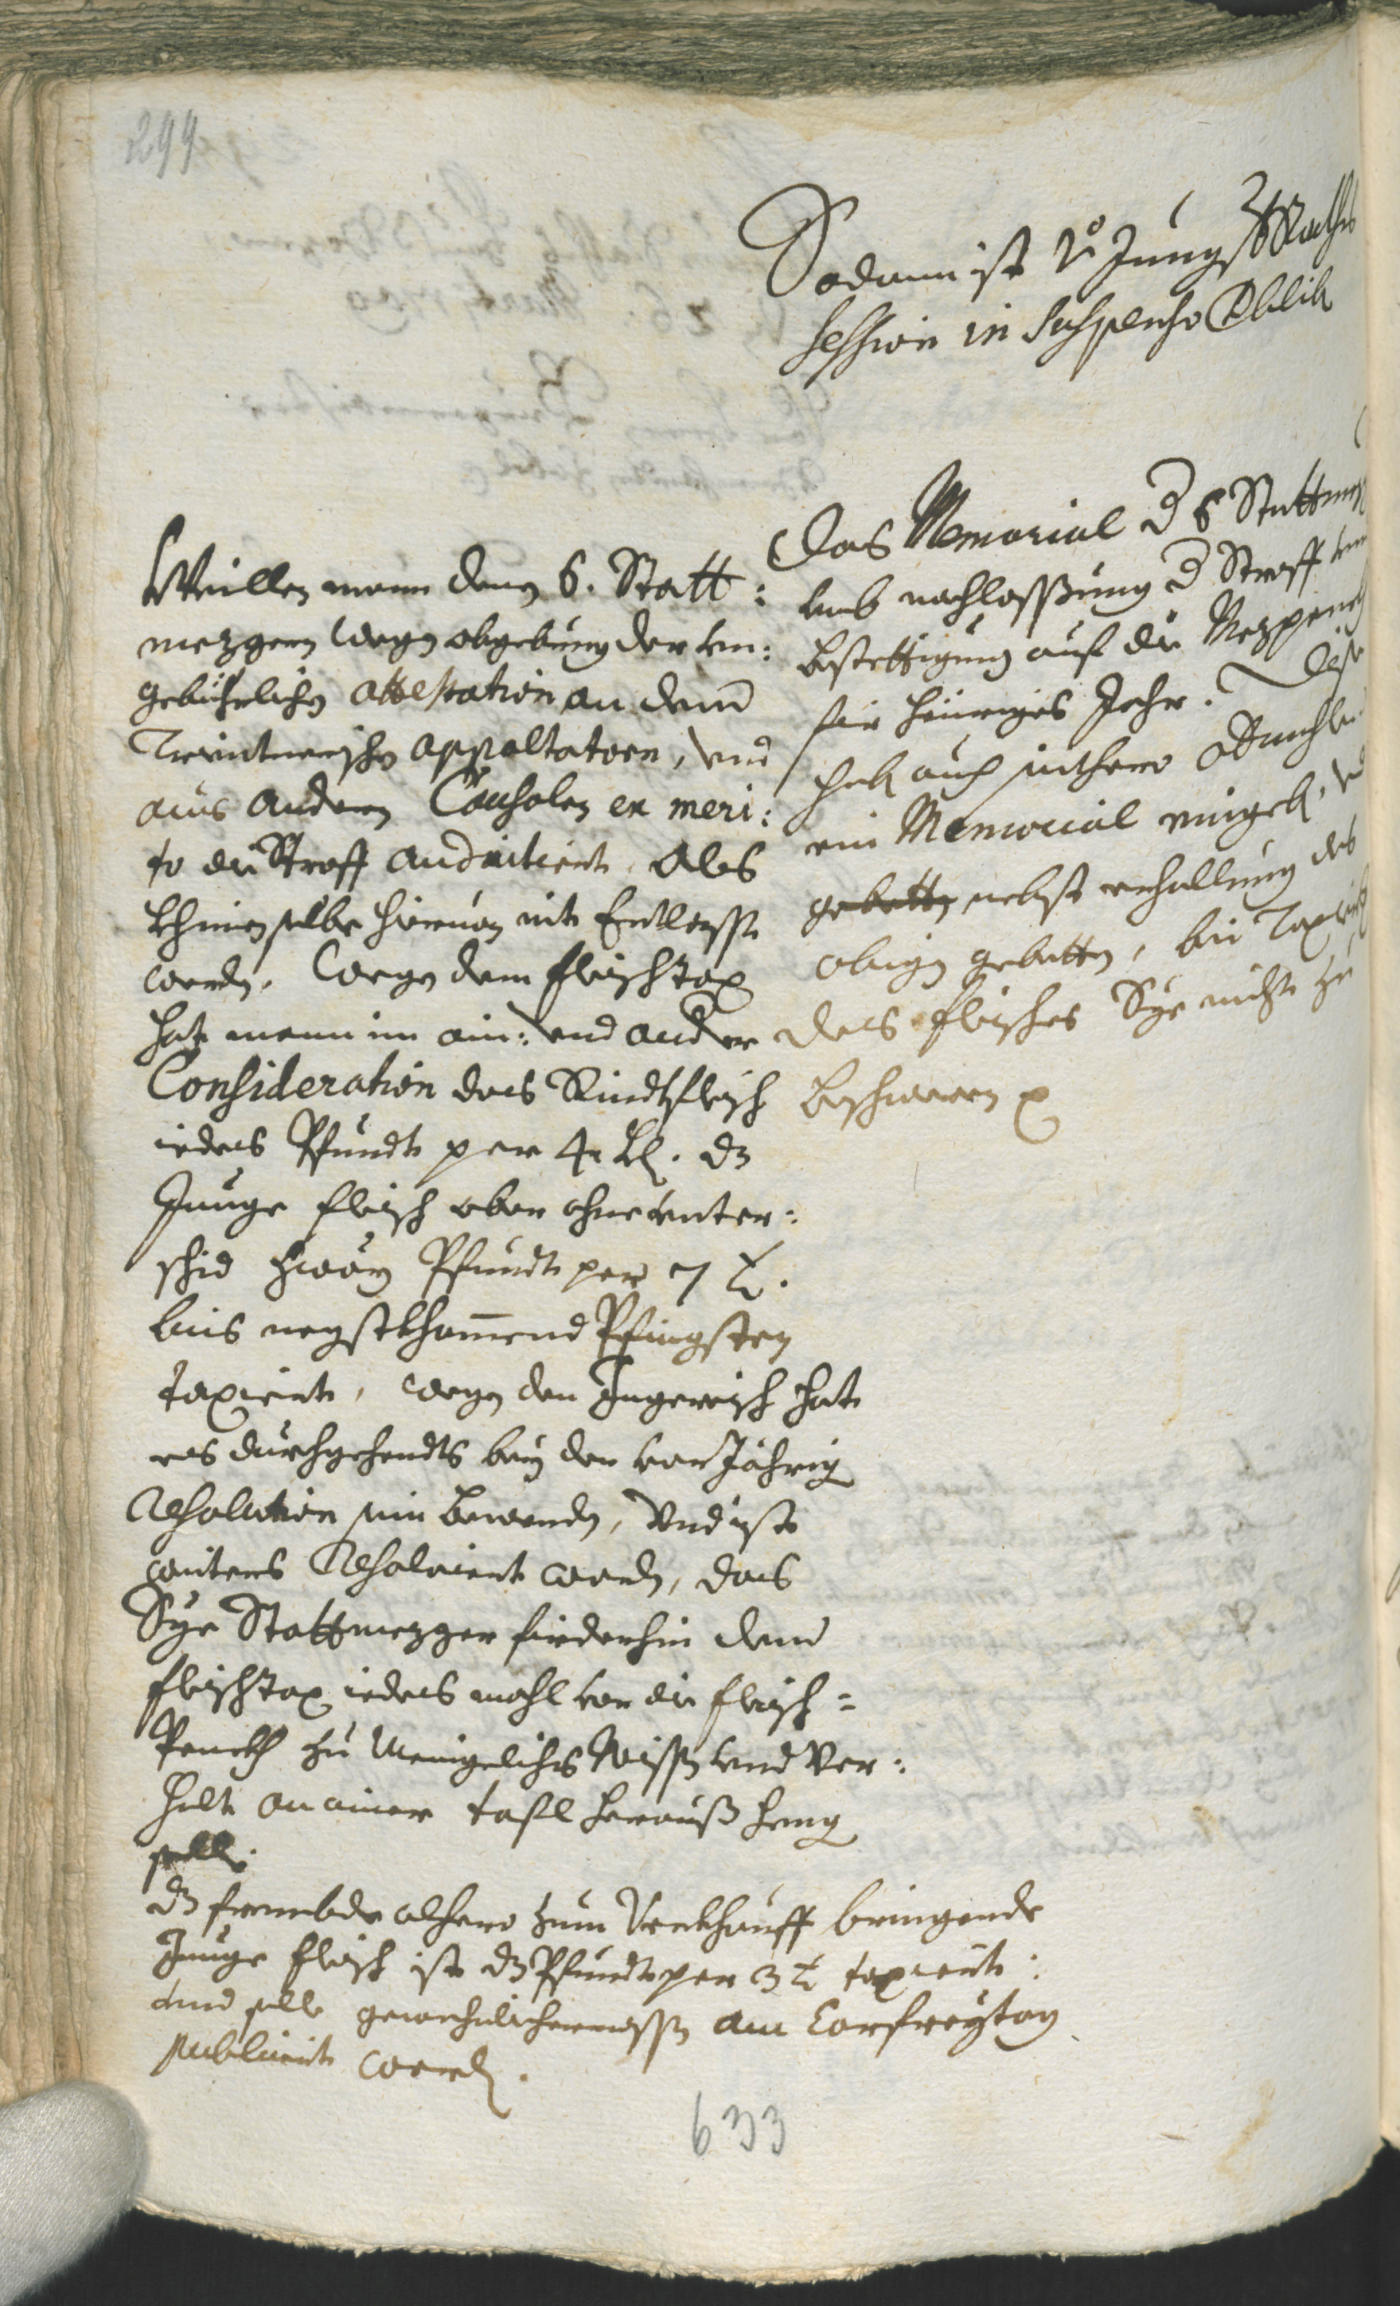 299
Sodann ist in Jungst Raths
session in suspenso Pblib
Das Memorial d 6 Stattmez
umb nachlassung d Straff vnd
bestettigung auf die Mezpenckh
für heuriges Jahr. Dise
hab auch seithero
ein Memorial eingeb. vnd
gebetten nebst erhallung des
obigen gebetten, bei Taxier
des fleisches Sye nicht zu
beschwern
Weillen mann denen 6. Statt:
mezgern wegen abgebung der un:
gebührlichen attestation an denen
appaltatorn, und
aus andern Causalen ex meri:
to die Straff andictiert. Als
khinen selbe hieruon nit Entlassen
werden. Wegen dem fleischtax
hat mann in ain: und ander
Consideration das Rindtfleisch
iedes Pfundt per 4 kh. dz
Junge fleisch aber ohne unter:
schid zwöy Pfundt per 7 kh.
bis negstkhomend Pfingsten
taxiert, wegen den Ingereisch hat
es durchgehendts bey der vor Jährig
Resolution sein bewenden, Vnd ist
weiters Resolviert worden, das
Sye Stattmezger fürderhin denen
fleischtax iedes mahl vor die fleisch=
Penckh zu Menigelichs Wissen und Ver:
halt an ainer tafl heraus heng
sollen.
dz frembde alhero zum Verkhauff bringende
Junge fleisch ist dz Pfundt per 3 kh taxiert:
und solle gewohnlichermassen am Carfreytag
publiciert werden.
633